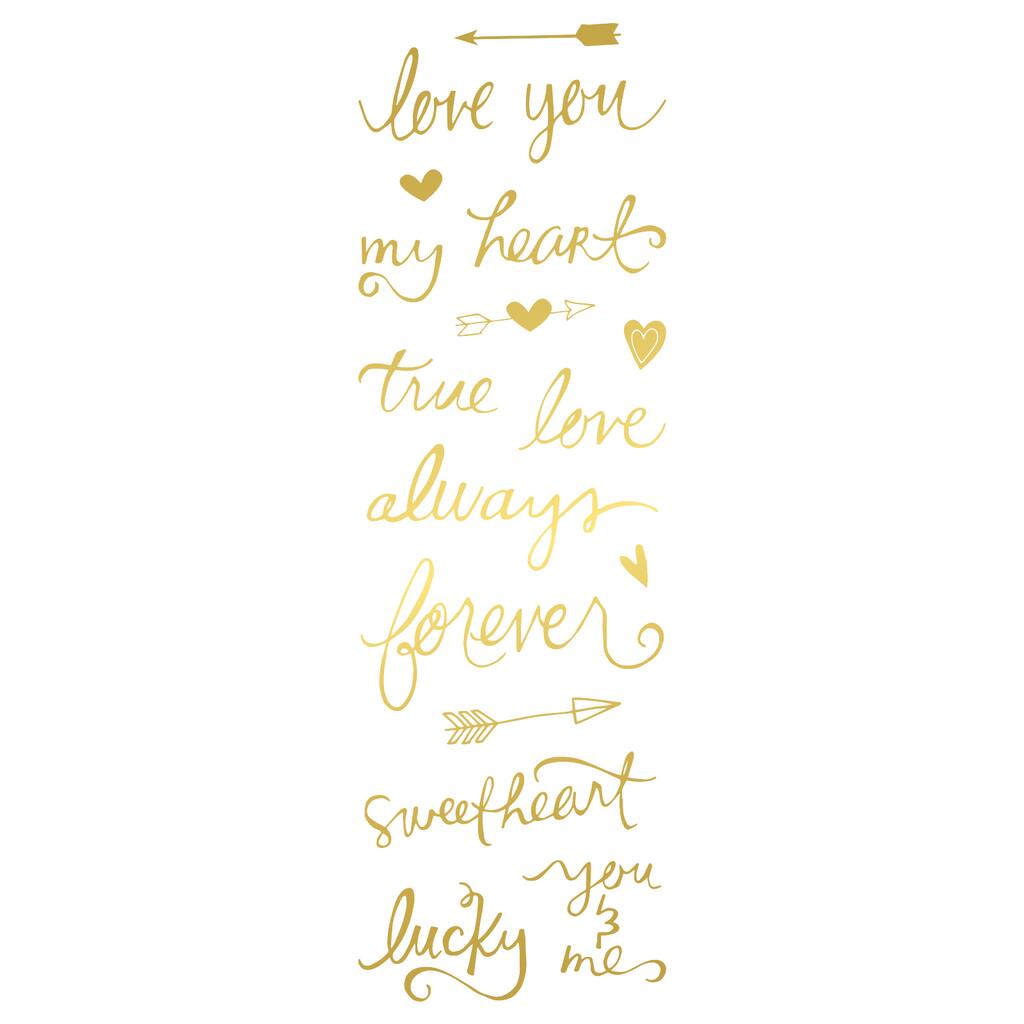 love you
my heart
true love
always
forever
sweetheart
you
&
me
lucky